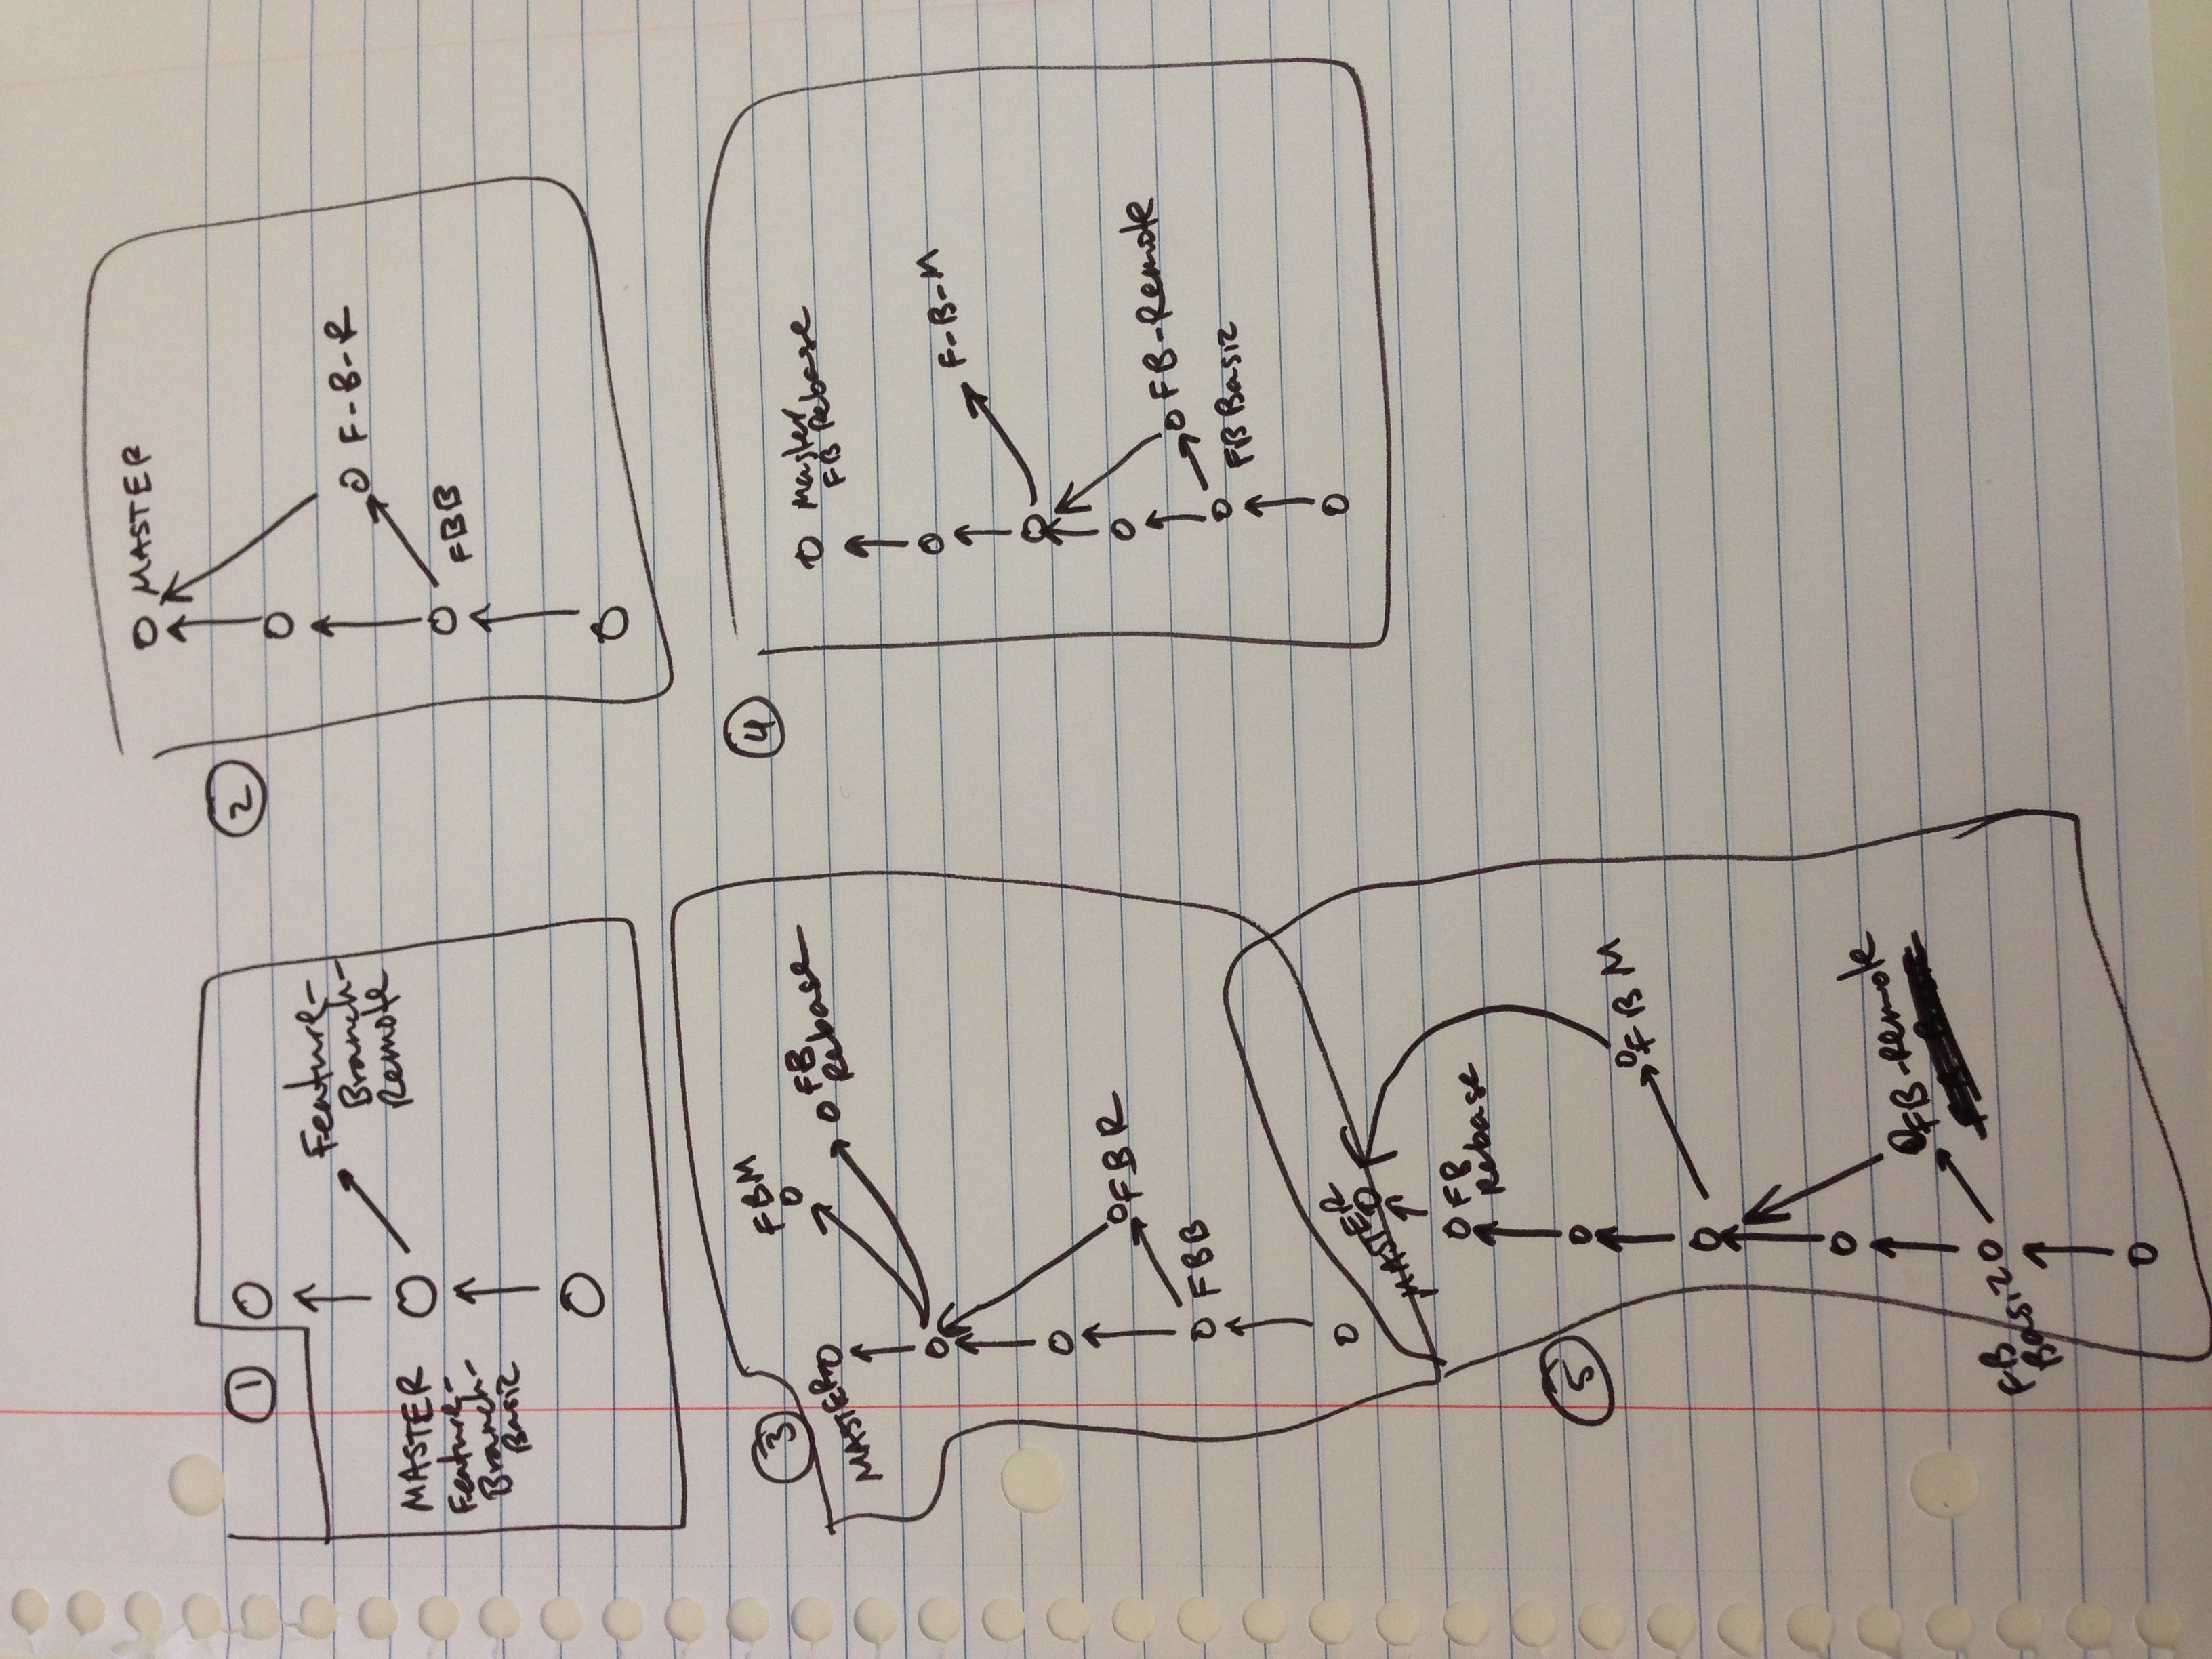 1
Feature-
Branch-
Remote
MASTER
Feature-
Branch-
Basic
2
MASTER
F-B-R
FBB
3
FBM
FB
Rebase
MASTER
FBR
FBB
4
Master
FB Rebase
F-B-M
FB-Remote
FB Basic
5
MASTER
FB
Rebase
FBM
FB-Remote
FB
Basic